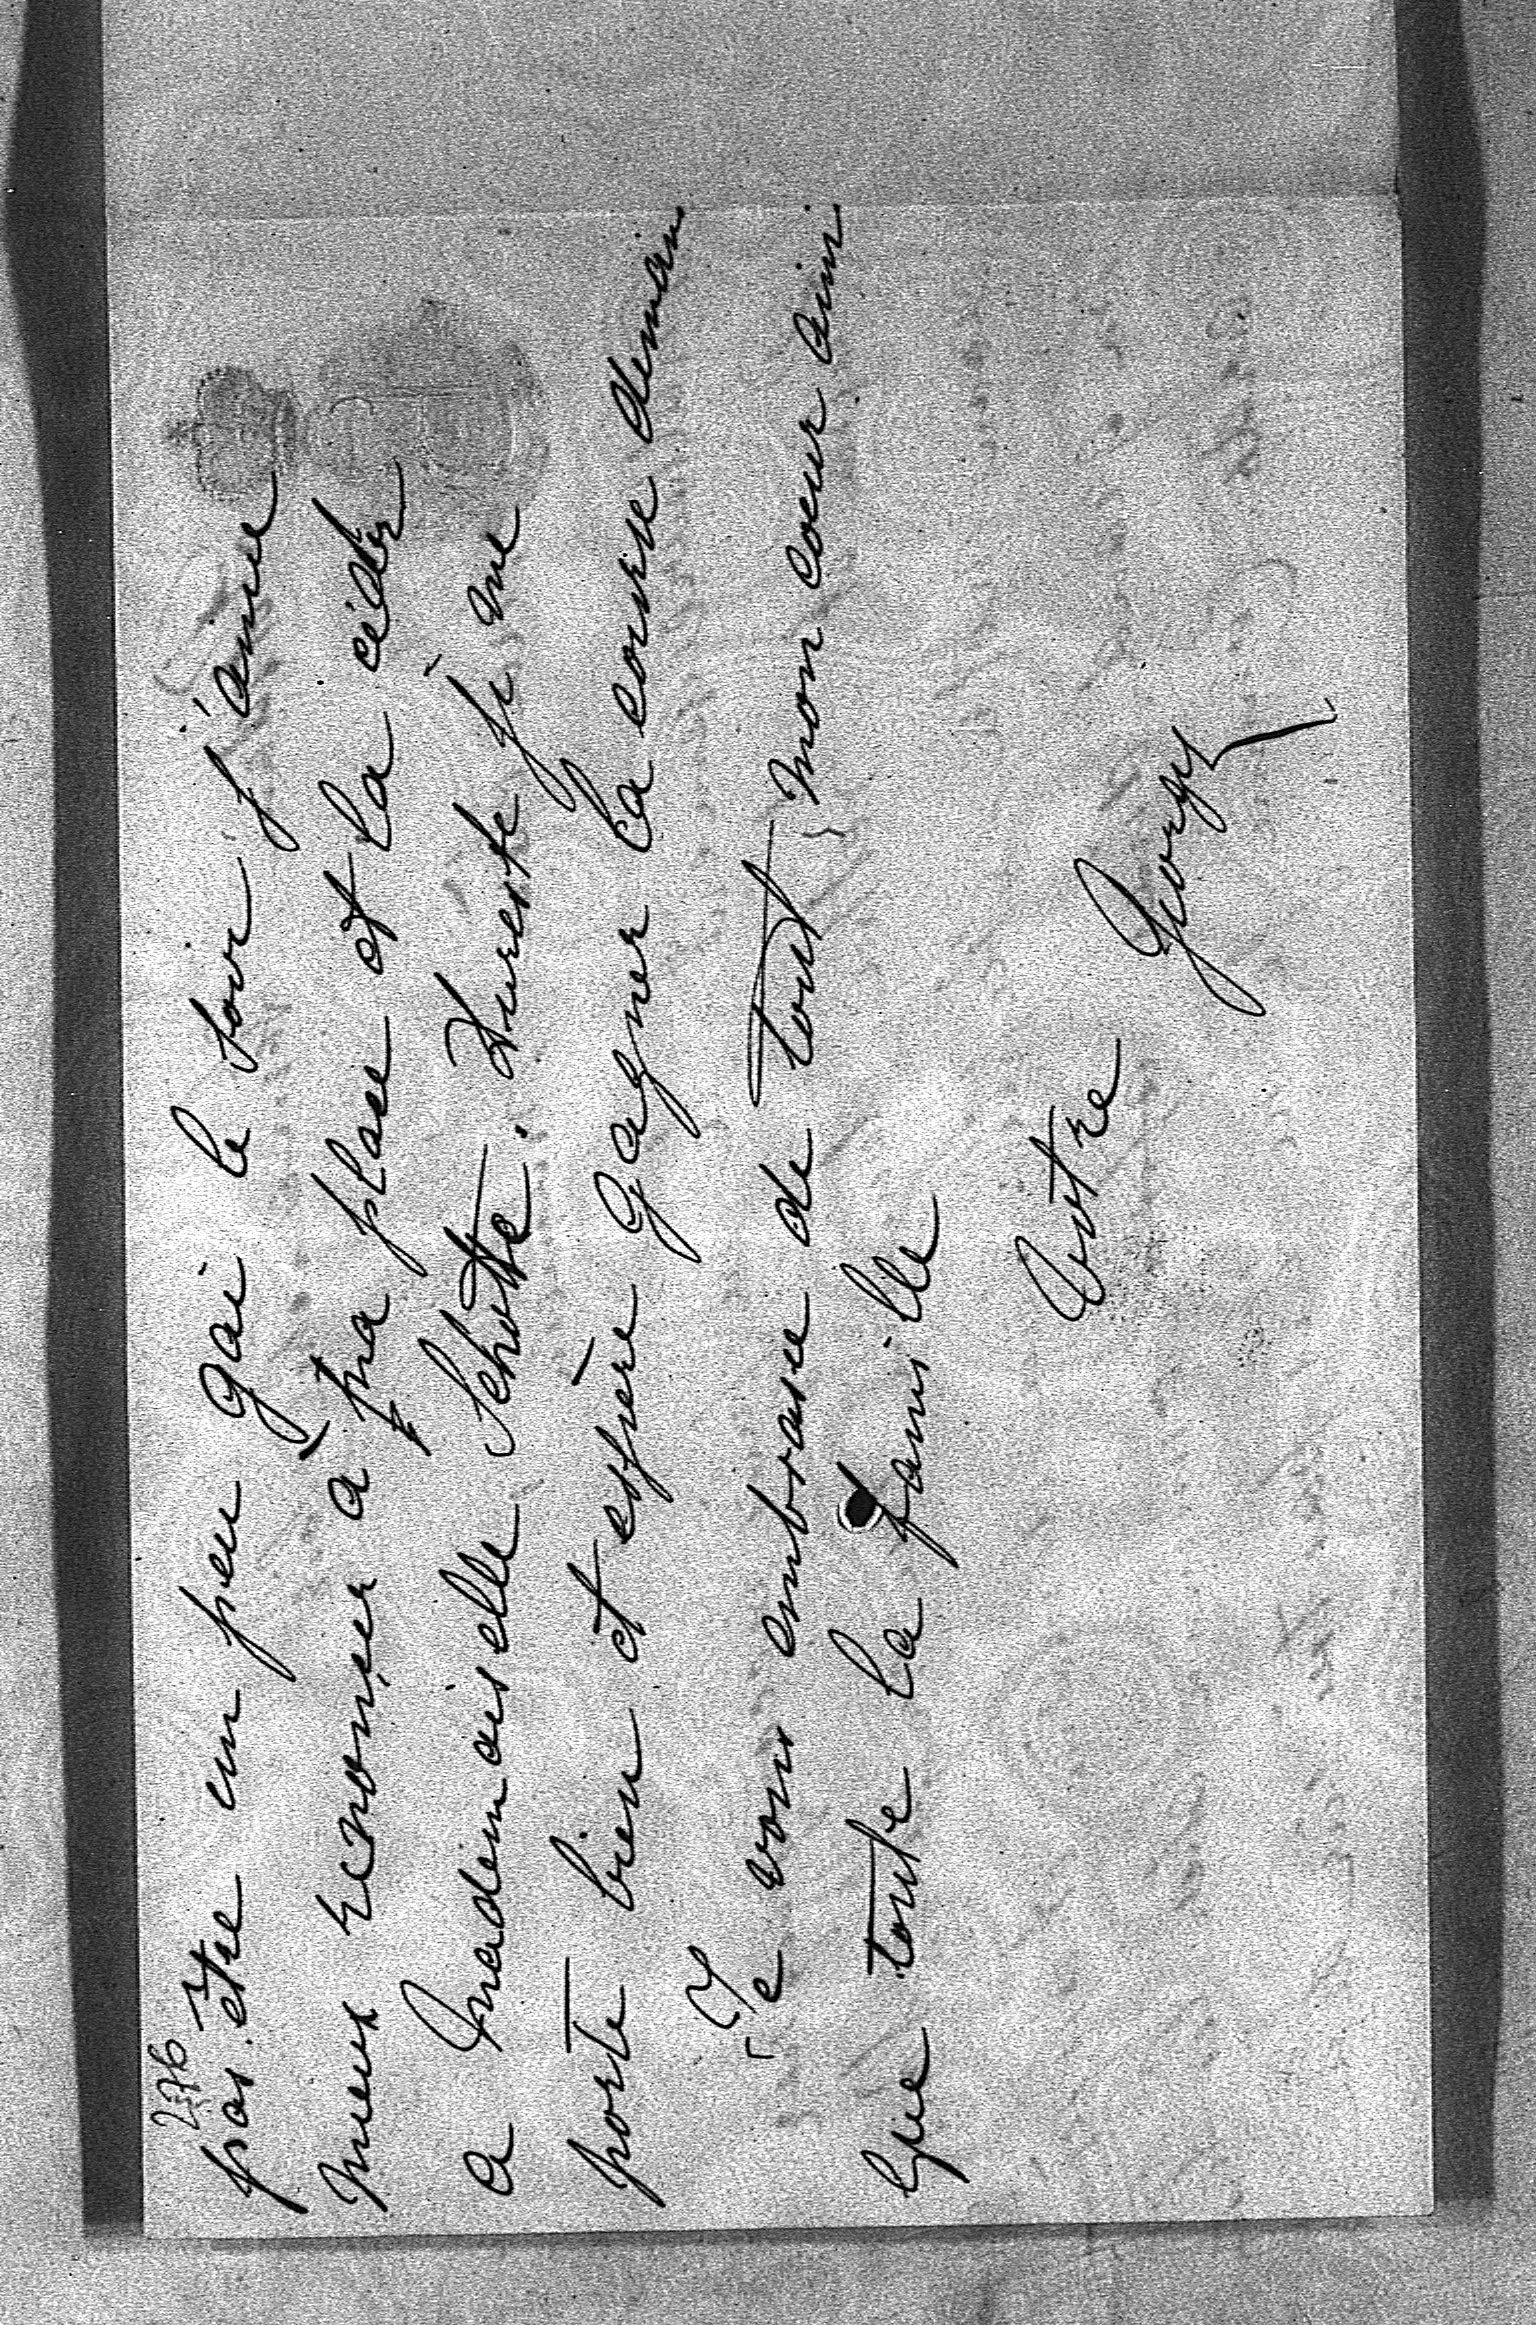 276
pas être un peu gai le soir j'aime
mieux renonçer à ma place et la céder
a Mademoiselle Schotte. Dureste je me
porte bien et espère gagner la course demain
Je vous embrasse de tout mon coeur ainsi
que toute la famille
Votre Georges